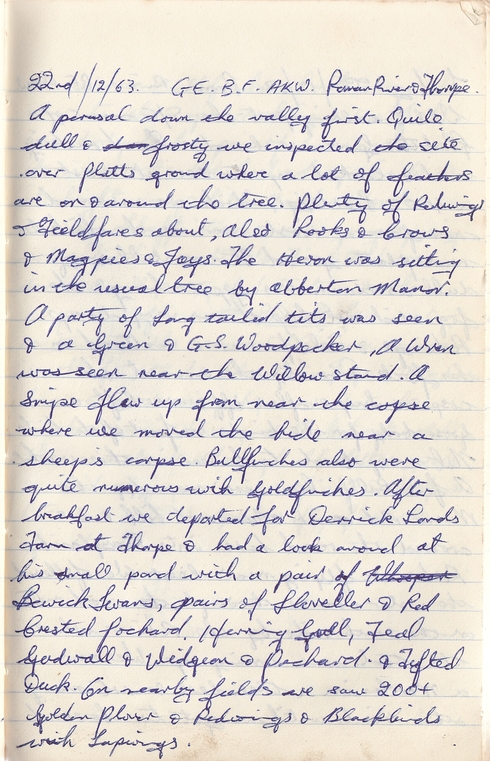 22nd/12/63. G.E. B.F. AKW. Roman River & Thorpe.
A perusal down the valley first. Quite
dull & frosty we inspected the site
over Pletts ground where a lot of feathers
are on & around the tree. Plenty of Redwings
& Fieldfares about, Also Rooks & Crows
& Magpies & Jays. The Heron was sitting
in the usual tree by Abberton Manor.
A party of Long tailed tits was seen
& a Green & G.S. Woodpecker, A Wren
was seen near the Willow stand. A
Snipe flew up from near the copse
where we moved the hide near a
sheeps corpse. Bullfinches also were
quite numerous with Goldfinches. After
breakfast we departed for Derrick Lords
Farm at Thorpe & had a look around at
his small pond with a pair of Whooper
Bewick Swans, pairs of Shoveller & Red
Crested Pochard. Herring Gull, Teal
Gadwall & Widgeon & Pochard. & Tufted
Duck. On nearby fields we saw 200+
Golden Plover & Redwings & Blackbirds
with Lapwings.